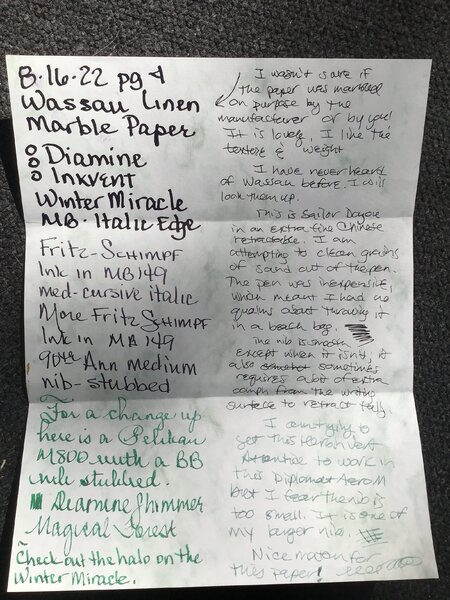 8.16.22 pg 4
Wassau Linen
Marble Paper
Diamine
Inkvent
Winter Miracle
MB. Italic Edge
Fritz-Schimpf
Ink in MB149
med-cursive italic
More Fritz Schimpf
Ink in MB 149
90th Ann medium
nib-stubbed
For a change up
here is a Pelikan
M800 with a BB
nib stubbed.
Diamine Shimmer
Magical Forest
Check out the halo on the
Winter Miracle.
I wasn't sure if
the paper was marbled
on purpose by the
manufacturer or by you!
It is lovely, I like the
texture & weight
I have never heard
of Wassau before. I will
look them up.
This is Sailor
in an extra fine Chinese
retractable. I am
attempting to clean grains
of sand out of the pen.
The pen was inexpensive,
which meant I had no
qualms about throwing it
in a beach bag.
The nib is smooth
except when it isn't, it
also sometimes
requires a bit of extra
oomph from the writing
surface to retract fully.
I am trying to
get this
to work in
this Diplomat Aero M
but I fear the nib is
too small. It is one of
my larger nib.
Nice match for
this paper!